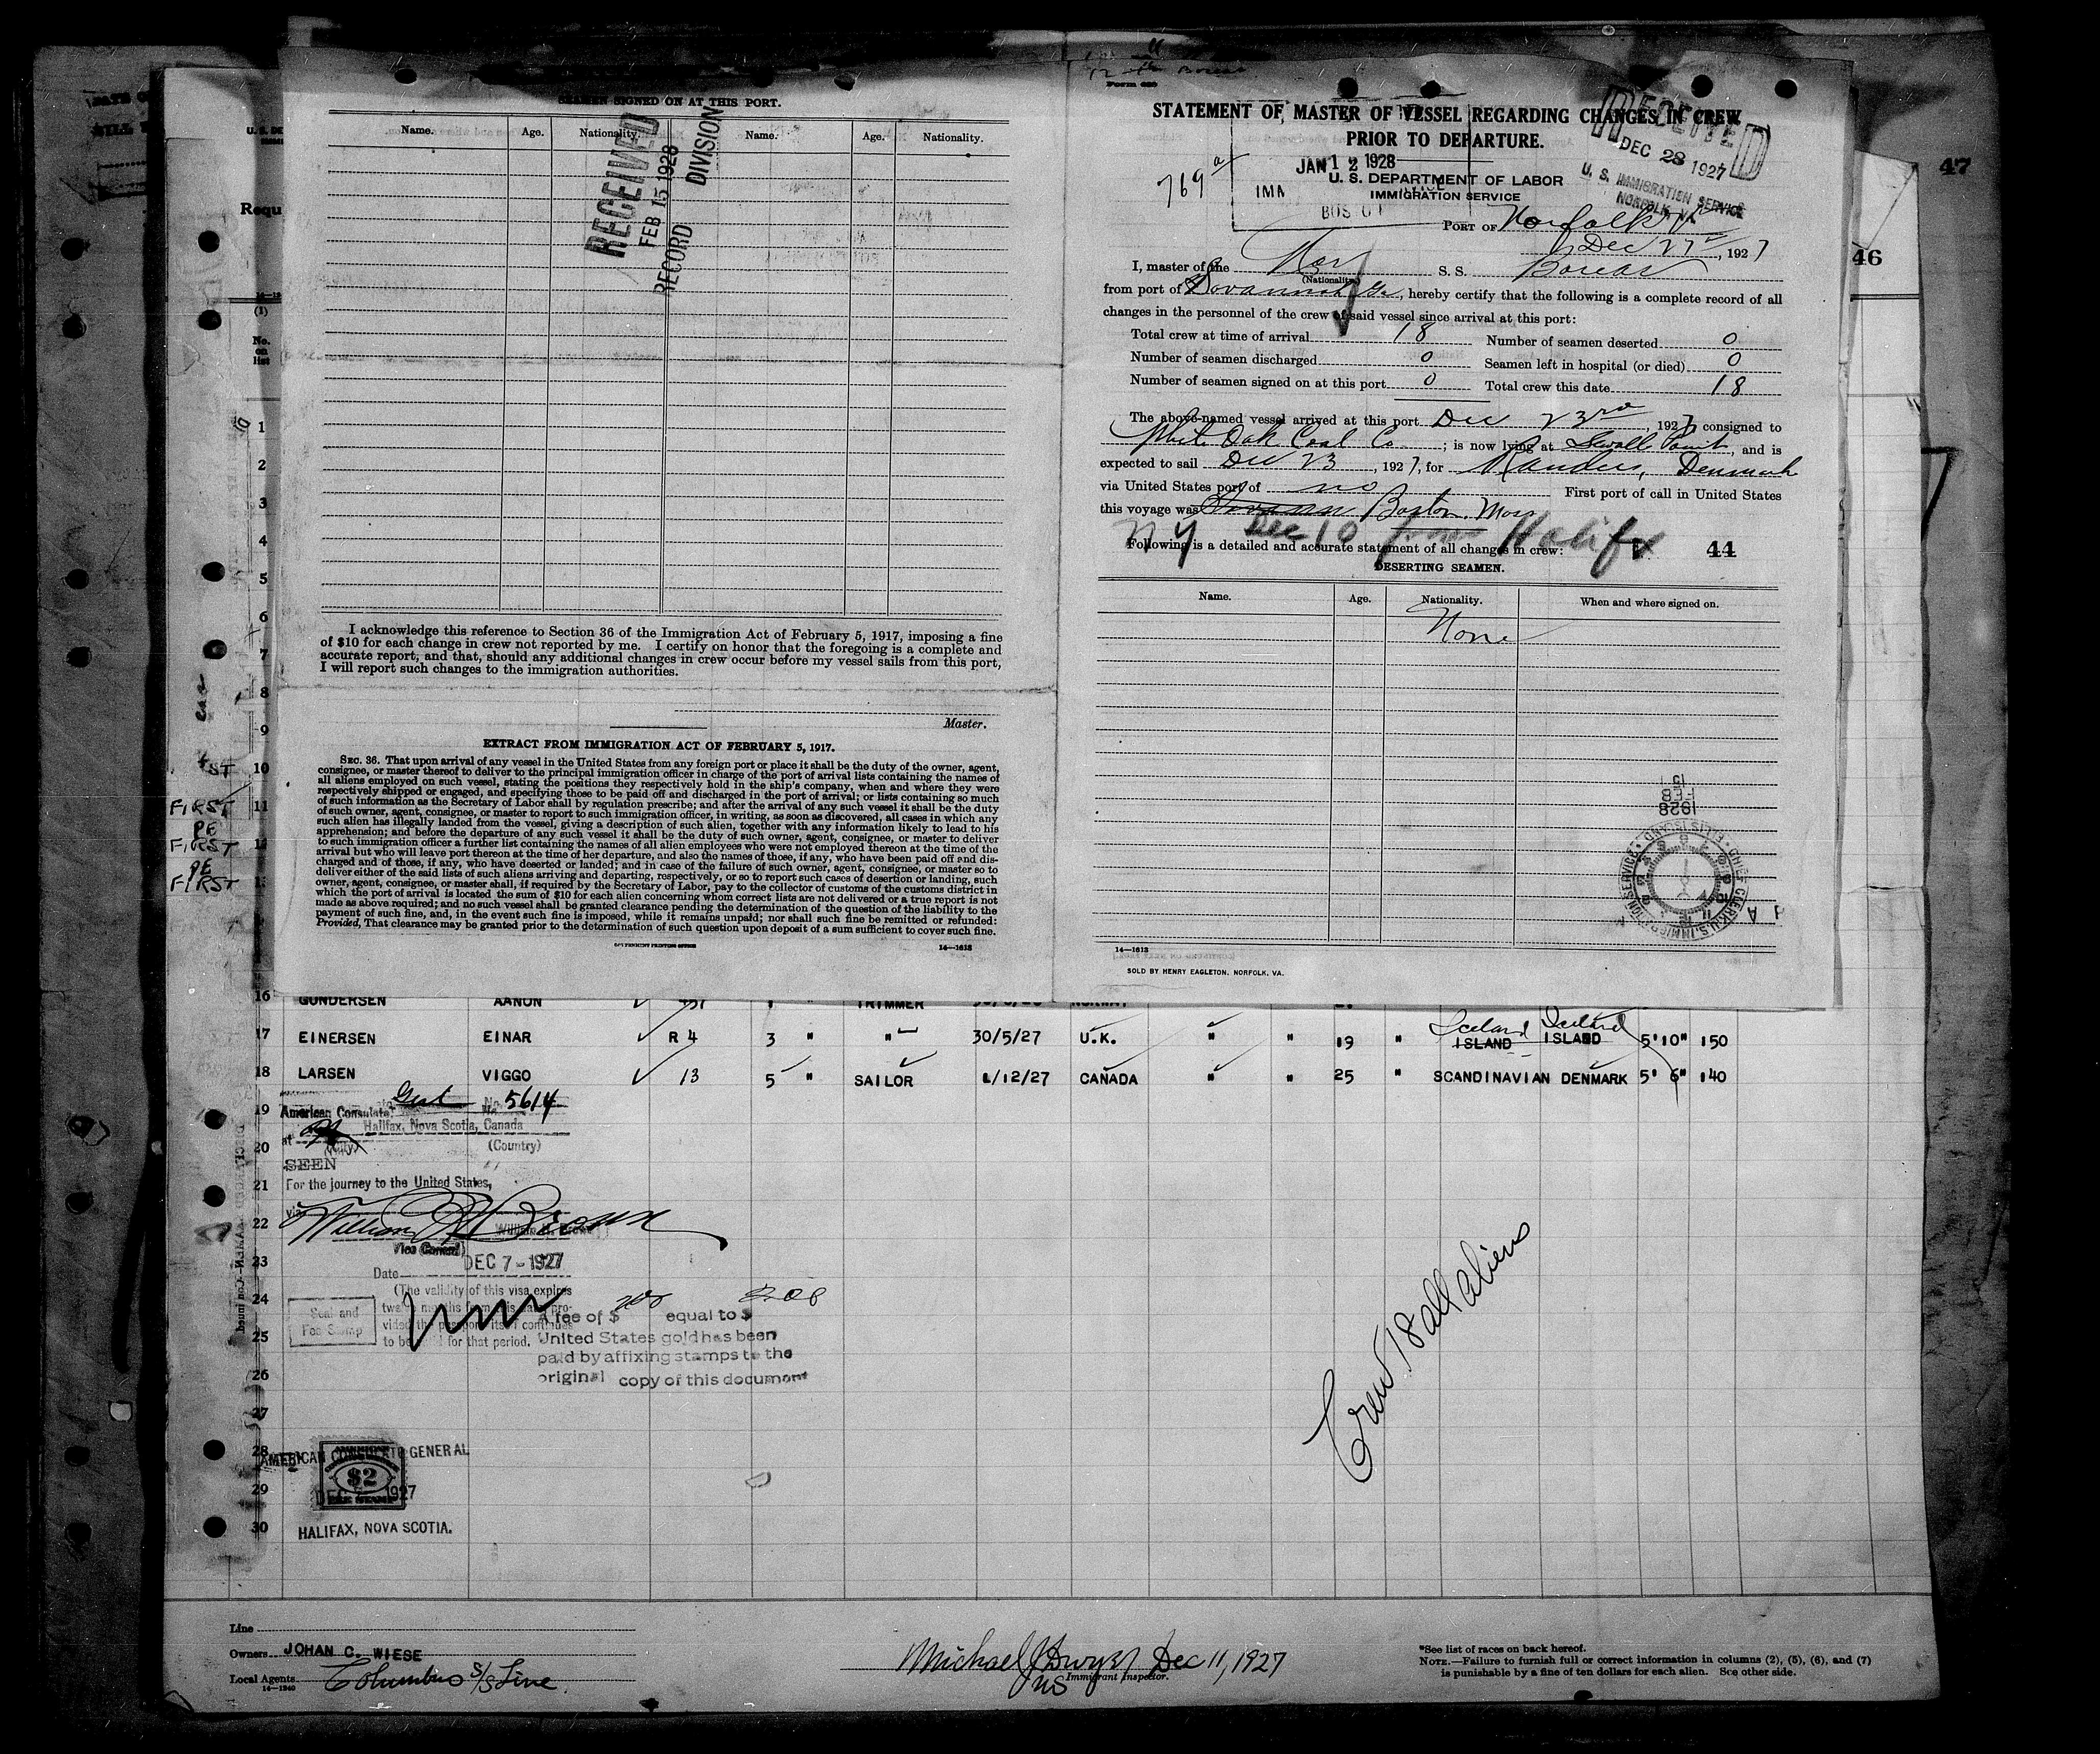 47
46
SEAMEN SIGNED ON AT THIS PORT.
Name. Age. Nationality. Name. Age. Nationality.
RECEIVED
FEB 15 1928
RECORD DIVISION
I acknowledge this reference to Section 36 of the Immigration Act of February 5, 1917, imposing a fine
of $10 for each change in crew not reported by me. I certify on honor that the foregoing is a complete and
accurate report, and that, should any additional changes in crew occur before my vessel sails from this port,
I will report such changes to the immigration authorities.
Master.
EXTRACT FROM IMMIGRATION ACT OF FEBRUARY 5, 1917.
SEC. 36. That upon arrival of any vessel in the United States from any foreign port or place it shall be the duty of the owner, agent,
consignee, or master thereof to deliver to the principal immigration officer in charge of the port of arrival lists containing the names of
all aliens employed on such vessel, stating the positions they respectively hold in the ship's company, when and where they were
respectively shipped or engaged, and specifying those to be paid off and discharged in the port of arrival; or lists containing so much
of such information as the Secretary of Labor shall by regulation prescribe; and after the arrival of any such vessel it shall be the duty
of such owner, agent, consignee, or master to report to such immigration officer, in writing, as soon as discovered, all cases in which any
such alien has illegally landed from the vessel, giving a description of such alien, together with any information likely to lead to his
apprehension; and before the departure of any such vessel it shall be the duty of such owner, agent, consignee, or master to deliver
to such immigration officer a further list containing the names of all alien employees who were not employed thereon at the time of the
arrival but who will leave port thereon at the time of her departure, and also the names of those, if any, who have been paid off and dis-
charged and of those, if any, who have deserted or landed; and in case of the failure of such owner, agent, consignee, or master so to
deliver either of the said lists of such aliens arriving and departing, respectively, or so to report such cases of desertion or landing, such
owner, agent, consignee, or master shall, if required by the Secretary of Labor, pay to the collector of customs of the customs district in
which the port of arrival is located the sum of $10 for each alien concerning whom correct lists are not delivered or a true report is not
made as above required; and no such vessel shall be granted clearance pending the determination of the question of the liability to the
payment of such fine, and, in the event such fine is imposed, while it remains unpaid; nor shall such fine be remitted or refunded:
Provided, That clearance may be granted prior to the determination of such question upon deposit of a sum sufficient to cover such fine.
GOVERNMENT PRINTING OFFICE 14—1613
Form 689
STATEMENT OF MASTER OF VESSEL REGARDING CHANGES IN CREW
PRIOR TO DEPARTURE.
RECEIVED
DEC 28 1927
U. S. IMMIGRATION SERVICE
NORFOLK, VA.
769 a
JAN 12 1928
U. S. DEPARTMENT OF LABOR
IMMIGRATION SERVICE
PORT OF Norfolk Va
Dec 27, 1927
I, master of the Nor S. S. Boreas
(Nationality)
from port of Savannah Ga, hereby certify that the following is a complete record of all
changes in the personnel of the crew of said vessel since arrival at this port:
Total crew at time of arrival 18 Number of seamen deserted 0
Number of seamen discharged 0 Seamen left in hospital (or died) 0
Number of seamen signed on at this port 0 Total crew this date 18
The above-named vessel arrived at this port Dec 23rd, 1927, consigned to
White Oak Coal Co; is now lying at Sewall Point, and is
expected to sail Dec 23, 1927, for Randers, Denmark
via United States port of no First port of call in United States
this voyage was Boston, Mass
NY Dec 10 from Halifx
Following is a detailed and accurate statement of all changes in crew: 44
DESERTING SEAMEN.
Name. Age. Nationality. When and where signed on.
None
1928
FEB
15
CHIEF CLERK U.S. IMMIGRATION SERVICE
14—1613
SOLD BY HENRY EAGLETON, NORFOLK, VA.
Requ
(1)
No.
on
list
1
2
3
4
5
6
7
8
9
10
FIRST 11
FIRST 12
FIRST 13
16 GUNDERSEN AANON TRIMMER NORWAY
17 EINERSEN EINAR R 4 3 " " 30/5/27 U.K. " " 19 " Iceland Iceland ISLAND ISLAND 5'10" 150
18 LARSEN VIGGO 13 5 " SAILOR 1/12/27 CANADA " " 25 " SCANDINAVIAN DENMARK 5' 6" 140
19 American Consulate Genl No. 5614
at Halifax, Nova Scotia, Canada
20 (City) (Country)
SEEN
21 For the journey to the United States,
22 via William M Brown
Vice Consul
23 Date DEC 7-1927
24 (The validity of this visa expires
Seal and
Fee Stamp
A fee of $ 200 equal to $ 2.00
25 United States gold has been
paid by affixing stamps to the
26 original copy of this document
27
28 AMERICAN CONSULATE GENERAL
$2
29 DEC 1927
30 HALIFAX, NOVA SCOTIA.
Crew 18 all aliens
Line
Owners JOHAN C. WIESE
Local Agents Columbus S/S Line
14—1240
Michael J Dwyer Dec 11, 1927
Immigrant Inspector.
*See list of races on back hereof.
NOTE.—Failure to furnish full or correct information in columns (2), (5), (6), and (7)
is punishable by a fine of ten dollars for each alien. See other side.